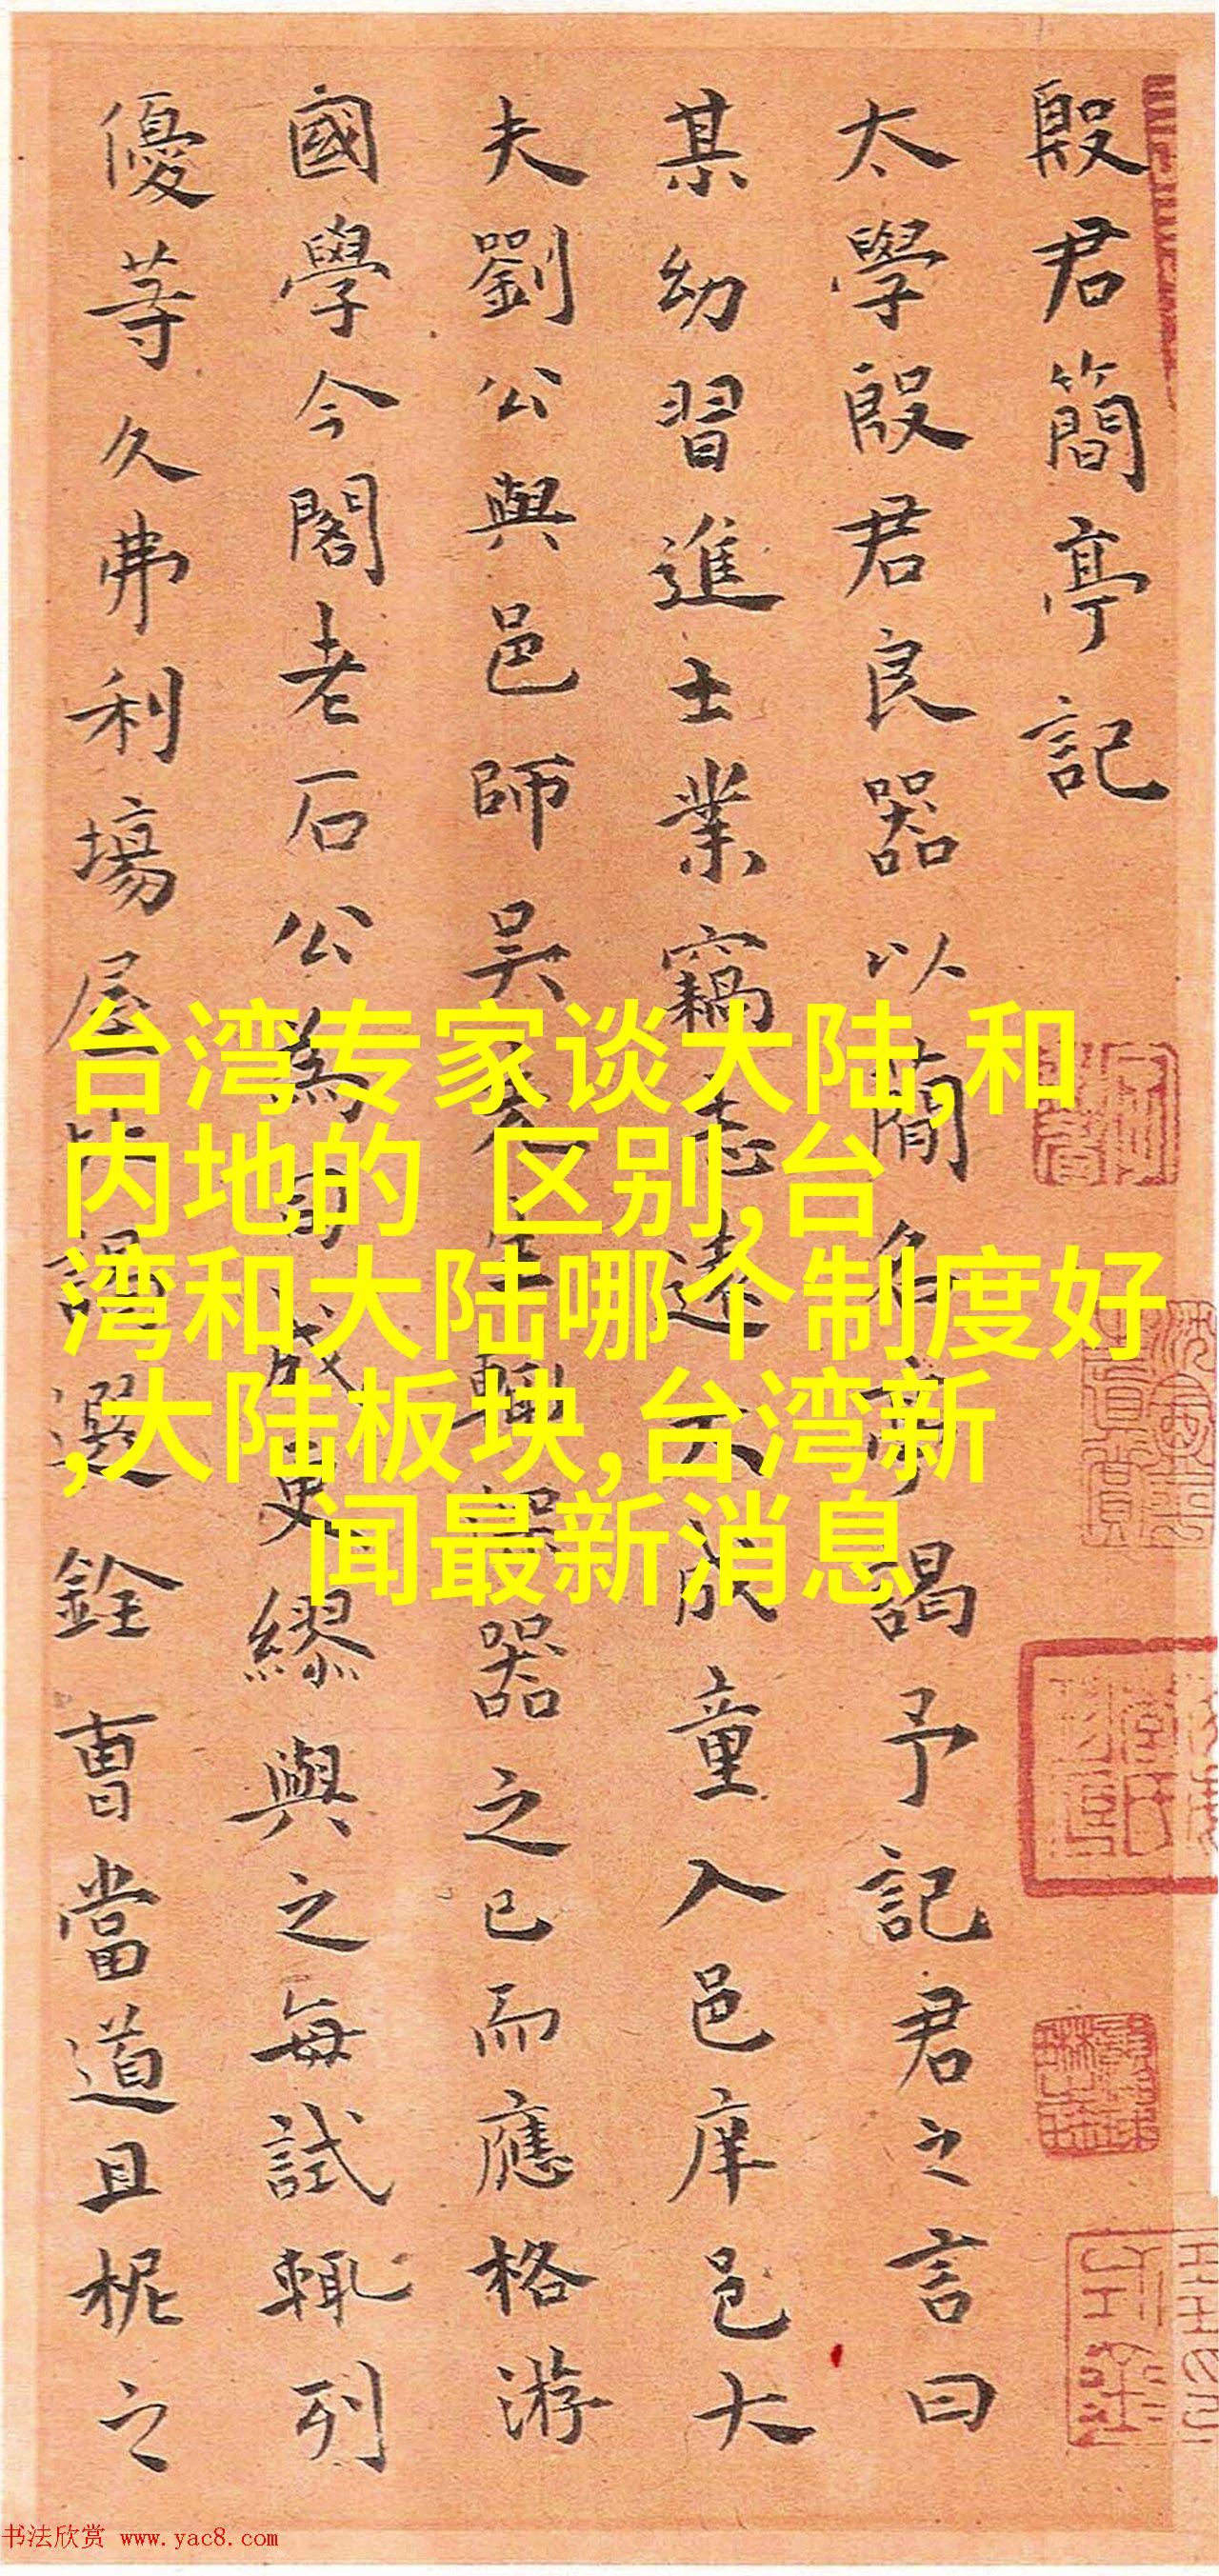 殷君簡亭記
太學殷君良器以簡名亭謁予記君之言曰
某幼習進士業竊志遠大成童入邑庠邑大
夫劉公與邑師吳先生輒器之已而應格游
國學今閣老石公為司成更繆與之每試輒列
優等久弗利場屋比謁選銓曹當道且柅之
台湾专家谈大陆,和
内地的 区别,台
湾和大陆哪个制度好
,大陆板块,台湾新
闻最新消息
书法欣赏 www.yac8.com